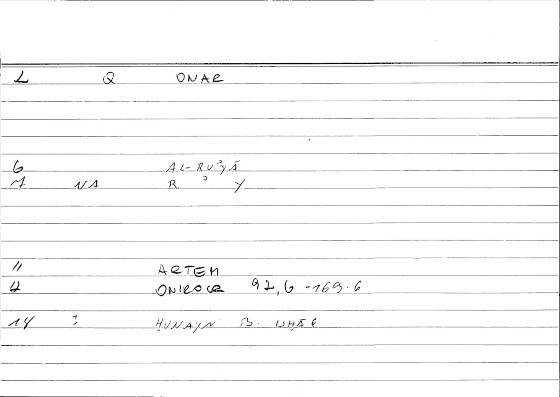 L Q ONAR
6 AL-RUʾYĀ
7 NA R ʾ Y
11 ARTEM
12 ONIROCR 92,6-169.6
14 : ḤUNAYN B. ISḤĀQ